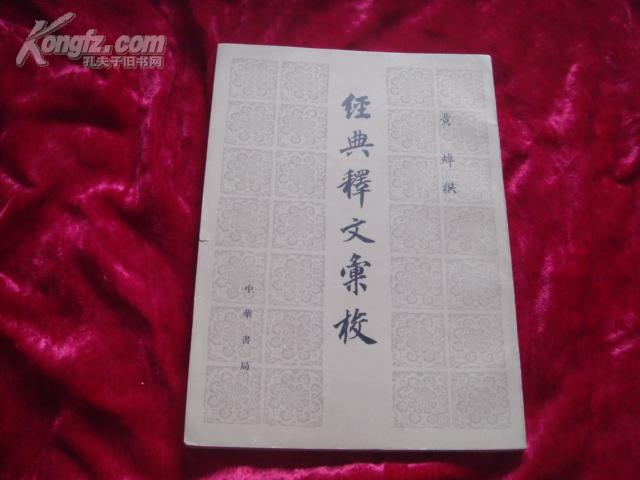 Kongfz.com
孔夫子旧书网
黄焯撰
經典釋文彙校
中華書局